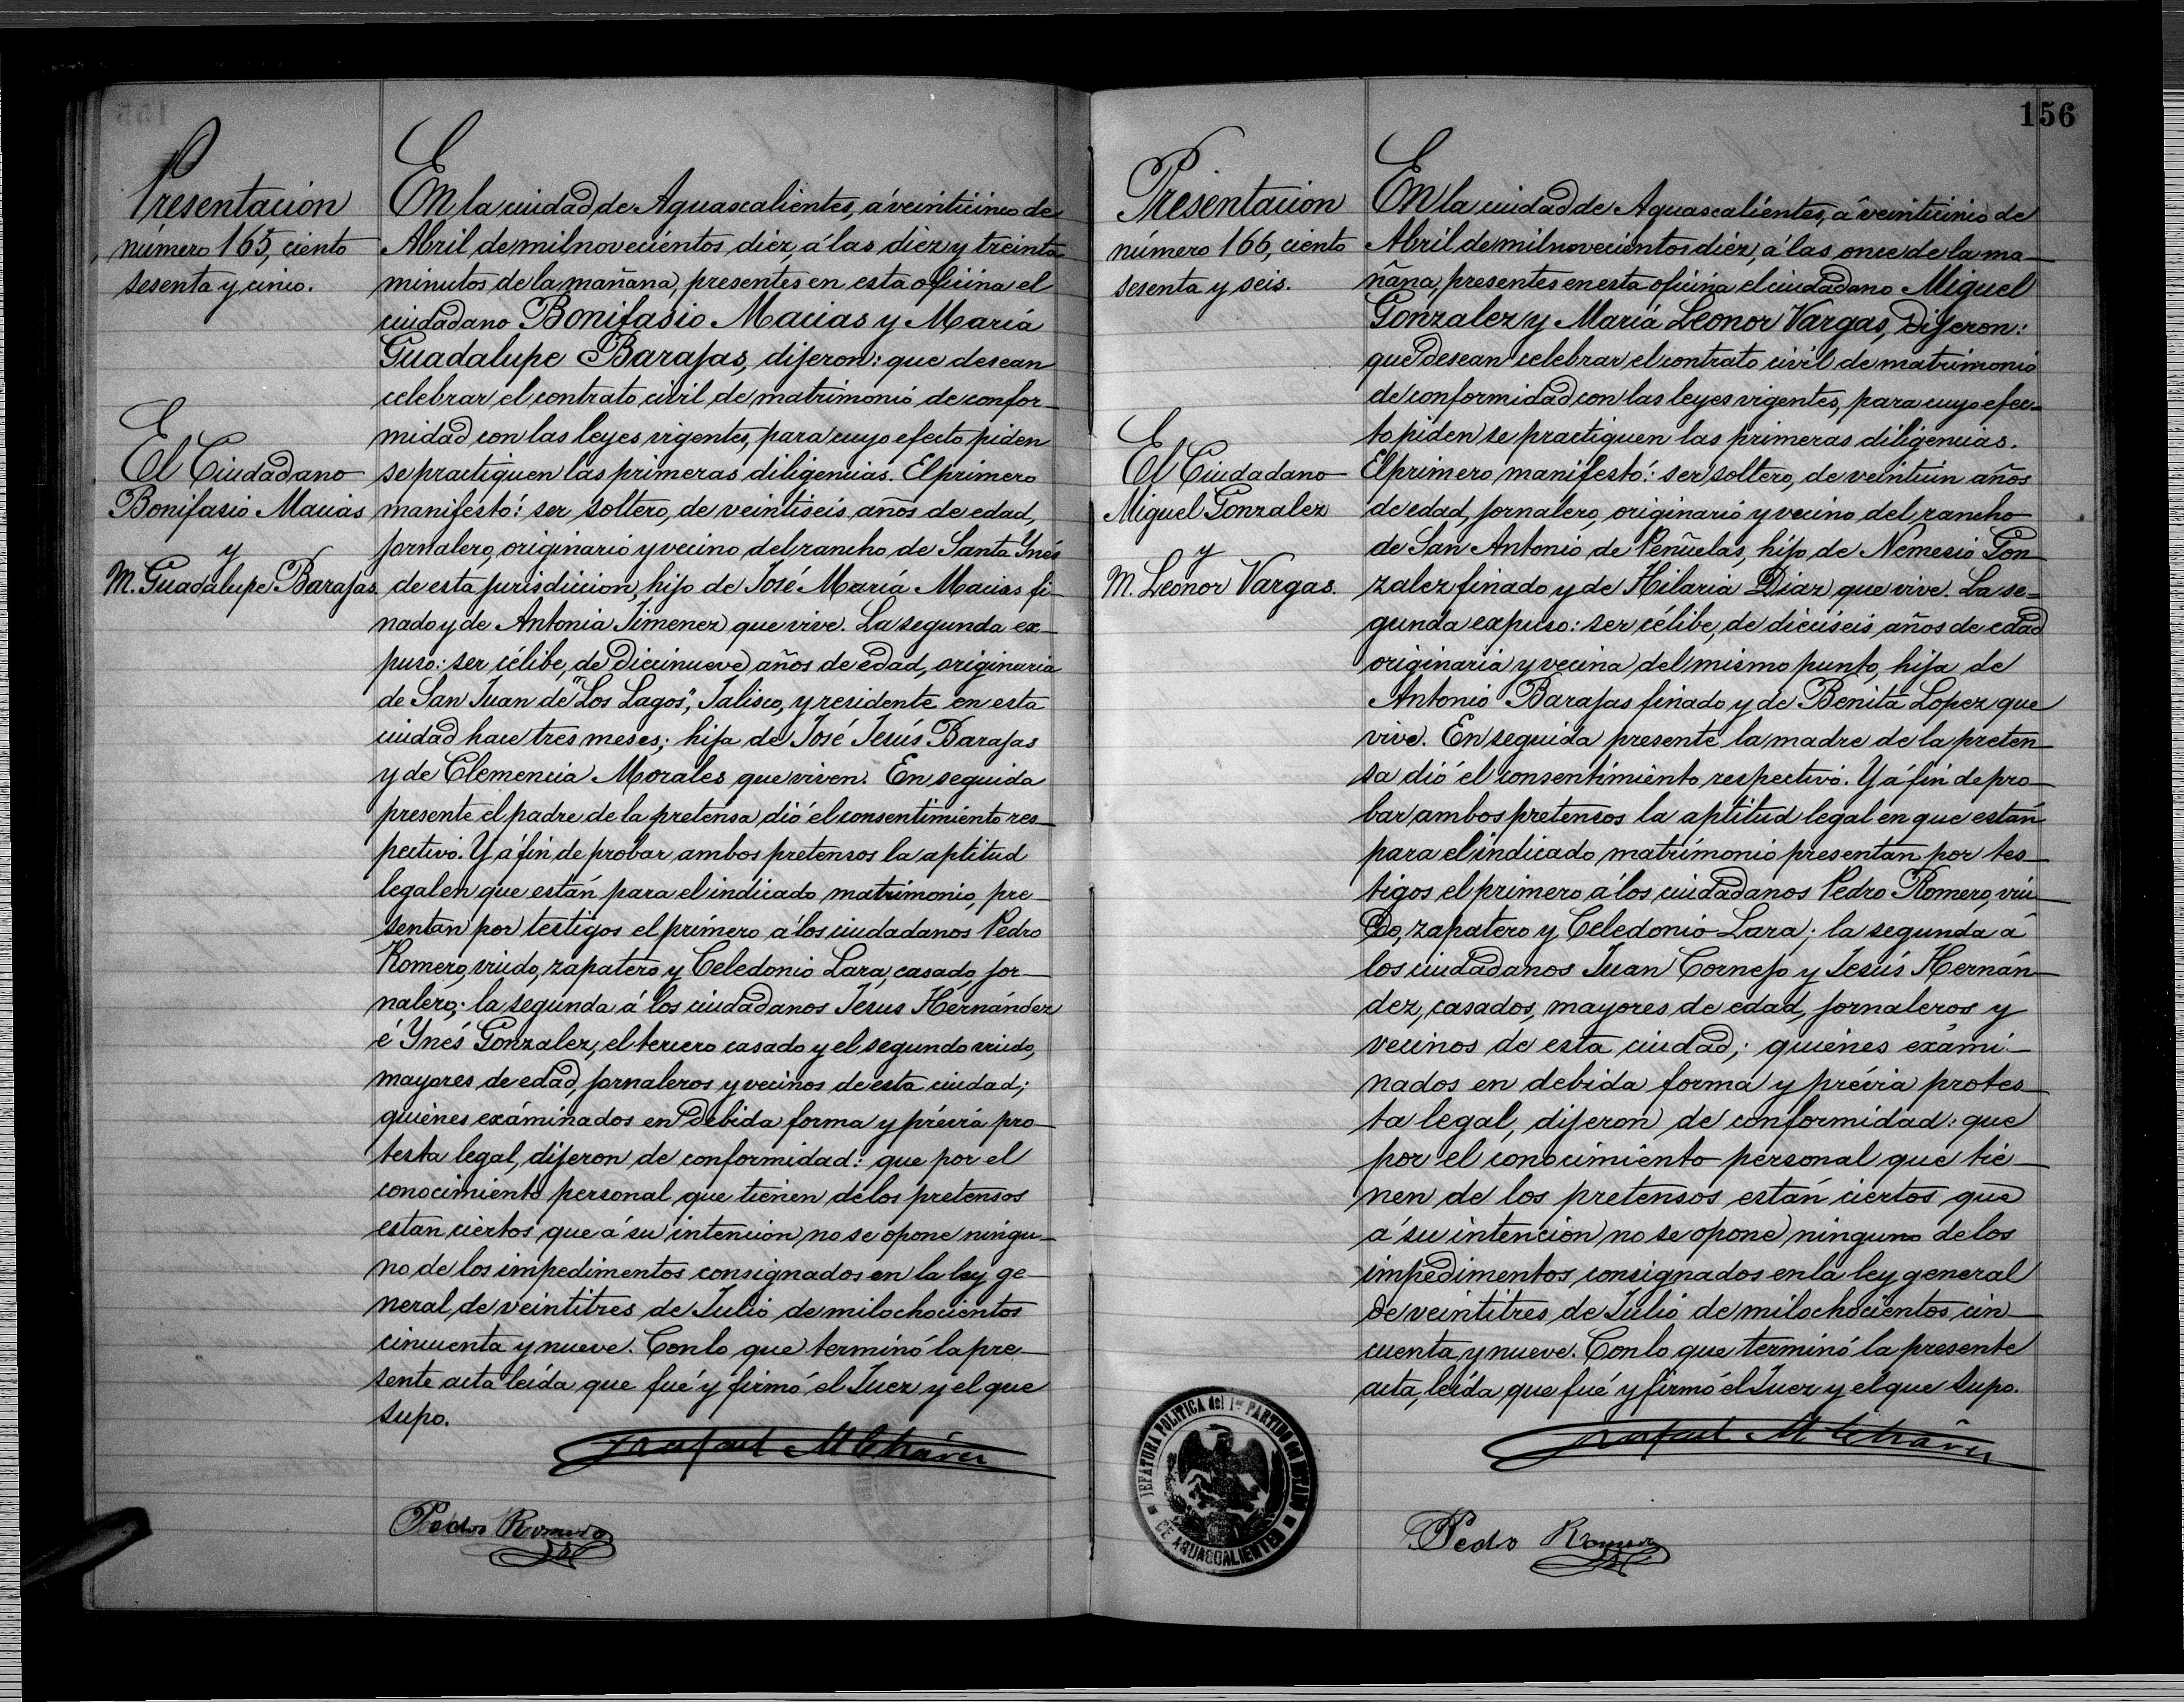 Presentacion
número 165, ciento
sesenta y cinco.
El Ciudadano
Bonifasio Macias
y
M. Guadalupe Barajas.
En la ciudad de Aguascalientes, á veinticinco de
Abril de mil novecientos diez, á las diez y treinta
minutos de la mañana, presentes en esta oficina el
ciudadano Bonifasio Macias y María
Guadalupe Barajas, dijeron: que desean
celebrar el contrato civil de matrimonio de confor-
midad con las leyes vigentes, para cuyo efecto piden
se practiquen las primeras diligencias. El primero
manifestó: ser soltero, de veintiseis años de edad,
jornalero, originario y vecino del rancho de Santa Ynés
de esta jurisdiccion, hijo de José María Macias fi-
nado y de Antonia Jimenez que vive. La segunda ex-
puso: ser célibe, de diecinueve años de edad, originaria
de San Juan de "Los Lagos", Jalisco, y residente en esta
ciudad hace tres meses; hija de José Jesús Barajas
y de Clemencia Morales que viven. En seguida
presente el padre de la pretensa dió el consentimiento res-
pectivo. Y á fin de probar ambos pretensos la aptitud
legal en que están para el indicado matrimonio, pre-
sentan por testigos el primero á los ciudadanos Pedro
Romero, viudo, zapatero y Celedonio Lara, casado, jor-
nalero; la segunda á los ciudadanos Jesús Hernández
é Ynés Gonzalez, el tercero casado y el segundo viudo,
mayores de edad, jornaleros y vecinos de esta ciudad;
quiénes exáminados en debida forma y prévia pro-
testa legal, dijeron de conformidad: que por el
conocimiento personal que tienen de los pretensos
estan ciertos que á su intencion no se opone ningu-
no de los impedimentos consignados en la ley ge-
neral de veintitres de Julio de mil ochocientos
cincuenta y nueve. Con lo que terminó la pre-
sente acta leída que fué y firmó el Juez y el que
supo.
Rafael M Chávez
Pedro Romero
156
Presentacion
número 166, ciento
sesenta y seis.
El Ciudadano
Miguel Gonzalez
y
M. Leonor Vargas.
En la ciudad de Aguascalientes, á veinticinco de
Abril de mil novecientos diez, á las once de la ma-
ñana, presentes en esta oficina el ciudadano Miguel
Gonzalez y María Leonor Vargas, Dijeron:
que desean celebrar el contrato civil de matrimonio
de conformidad con las leyes vigentes, para cuyo efec-
to piden se practiquen las primeras diligencias.
El primero manifestó: ser soltero, de veintiun años
de edad, jornalero, originario y vecino del rancho
de San Antonio de Peñuelas, hijo de Nemesio Gon-
zalez finado y de Hilaria Diaz que vive. La se-
gunda expuso: ser célibe, de dieciseis años de edad
originaria y vecina del mismo punto, hija de
Antonio Barajas finado y de Benita Lopez que
vive. En seguida presente la madre de la preten-
sa dió el consentimiento respectivo. Y á fin de pro-
bar ambos pretensos la aptitud legal en que están
para el indicado matrimonio presentan por tes-
tigos el primero á los ciudadanos Pedro Romero, viu-
do, zapatero y Celedonio Lara; la segunda á
los ciudadanos Juan Cornejo y Jesús Hernán-
dez, casados, mayores de edad, jornaleros y
vecinos de esta ciudad; quiénes exámi-
nados en debida forma y prévia protes-
ta legal, dijeron de conformidad: que
por el conocimiento personal que tie-
nen de los pretensos están ciertos que
á su intencion no se opone ninguno de los
impedimentos consignados en la ley general
de veintitres de Julio de mil ochocientos cin-
cuenta y nueve. Con lo que terminó la presente
acta, leída que fué y firmó el Juez y el que supo.
Rafael M Chávez
JEFATURA POLITICA del 1er PARTIDO DEL ESTADO
DE AGUASCALIENTES
Pedro Romero